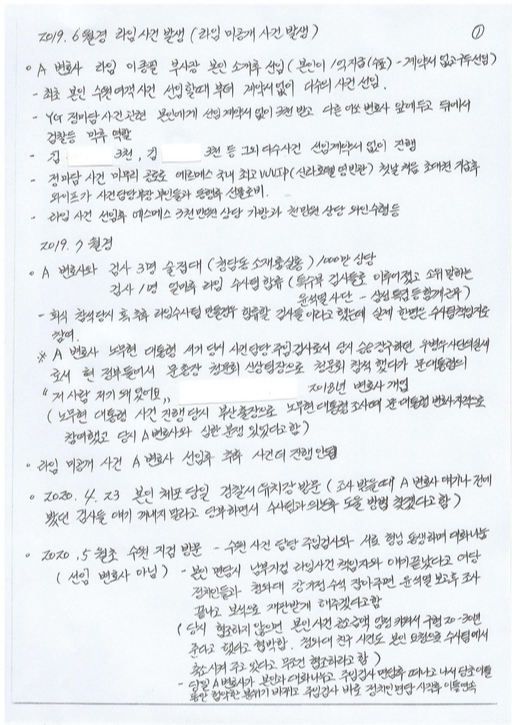 ①
2019. 6월경 라임사건 발생 (라임 미공개 사건 발생)
○ A 변호사 라임 이종필 부사장 본인 소개후 선임 (본인이 1억지급(수표) - 계약서 없고 구두선임)
- 최초 본인 수원여객 사건 선임할때 부터 계약서없이 다수의 사건 선임.
- YG 정마담 사건 관련 본인에게 선임계약서 없이 3천 받고 다른 여성 변호사 앞에두고 뒤에서
검찰등 막후 역할
- 김 3천, 김 3천 등 그외 다수사건 선임계약서 없이 진행
- 정마담 사건 마무리 공로로 에르메스 국내 최고 VVIP (신라호텔 영빈관) 첫날 처음 초대권 지급후
와이프가 사건담당부장 부인들과 동행후 선물로비.
- 라임 사건 선임후 에르메스 3천만원 상당 가방과 천만원 상당 와인수령등
2019. 7 월경
○ A 변호사와 검사 3명 술접대 (청담동 소재 룸살롱) 1000만 상당
검사 1명 얼마후 라임 수사팀 합류 (특수부 검사들로 이루어졌고 소위 말하는
윤석열 사단 - 삼성특검등 함께 근무)
- 회식 참석당시 혹 추후 라임수사팀 만들경우 합류할 검사들이라고 했는데 실제 한명은 수사팀 책임자로
참여.
※ A 변호사 노무현 대통령 서거 당시 사건담당 주임검사로서 당시 승승장구하던 우병우사단의 실세
로서 현 정부들어서 문총장 청문회 신상팀장으로 청문회 참석 했다가 문대통령의
"저 사람 저기 왜 있어요" 2018년 변호사 개업
(노무현 대통령 사건 진행 당시 부산출장으로 노무현 대통령 조사때 문대통령 변호사자격으로
참여했고 당시 A변호사와 심한 분쟁 있었다고 함)
○ 라임 미공개 사건 A 변호사 선임후 추후 사건 더 진행 안됨
○ 2020. 4. 23 본인 체포 당일 경찰서 유치장 방문 (조사 받을때 A변호사 얘기나 전에
봤던 검사들 얘기 꺼내지 말라고 당부하면서 수사팀과 의논후 도울 방법 찾겠다고 함)
○ 2020. 5월초 수원 지검 방문 - 수원 사건 담당 주임검사와 서로 형님 동생하며 대화나눔
(선임 변호사 아님) - 본인 면담시 남부지검 라임사건 책임자와 얘기끝났다고 여당
정치인들과 청와대 강기정 수석 잡아주면 윤석열 보고후 조사
끝나고 보석으로 재판받게 해주겠다고함
(당시 협조하지 않으면 본인 사건 공소금액 엄청 키워서 구형 20~30년
준다고 했다고 협박함. 청와대 친구 사건도 본인 요청으로 수사팀에서
축소시켜 주고 있다고 무조건 협조하라고 함)
- 당일 A변호사가 본인과 대화나누고 주임검사 면담후 떠나고 나서 당초 이틀
동안 협박한 분위기 바뀌고 주임검사 바로 정치인 면담 시작후 이틀연속